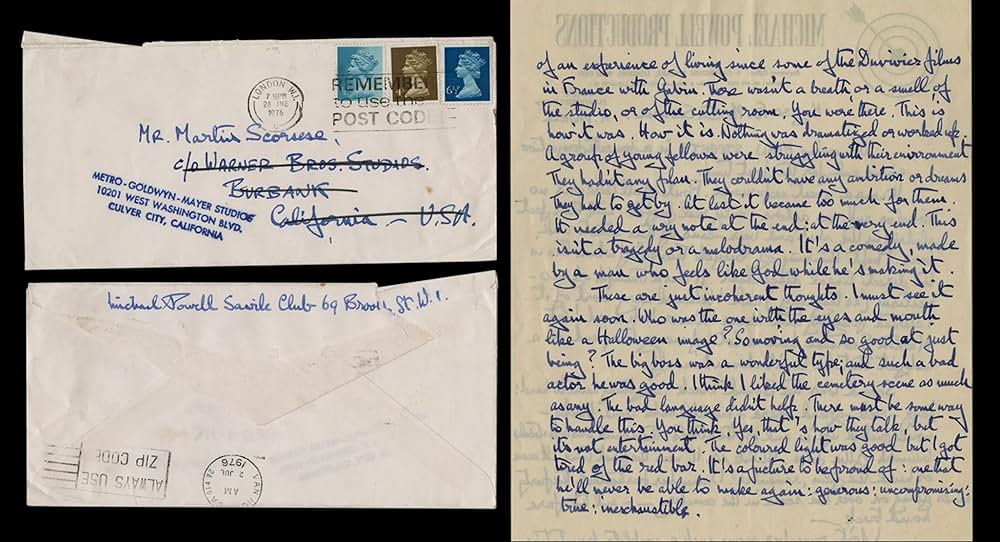 LONDON W.1.
7 30PM
28 JNE
1976
REMEMBER
to use the
POST CODE
6½P
Mr. Martin Scorsese,
c/o WARNER BROS. STUDIOS.
BURBANK
California — U.S.A.
METRO-GOLDWYN-MAYER STUDIOS
10201 WEST WASHINGTON BLVD.
CULVER CITY, CALIFORNIA
Michael Powell Savile Club 69 Brook St. W.1.
ALWAYS USE
ZIP CODE
AM
2 JUL
1976
MICHAEL POWELL PRODUCTIONS
of an experience of living since some of the Duvivier films
in France with Gabin. There wasn't a breath or a smell of
the studio, or of the cutting room. You were there. This is
how it was. How it is. Nothing was dramatized or worked up.
A group of young fellows were struggling with their environment
They hadn't any plan. They couldn't have any ambition or dreams
They had to get by. At last it became too much for them.
It needed a wry note at the end: at the very end. This
isn't a tragedy or a melodrama. It's a comedy, made
by a man who feels like God while he's making it.
These are just incoherent thoughts. I must see it
again soon. Who was the one with the eyes and mouth
like a Halloween image? So moving and so good at just
being? The big boss was a wonderful type; and such a bad
actor he was good. I think I liked the cemetery scene as much
as any. The bad language didn't help. There must be some way
to handle this. You think: Yes, that's how they talk, but
it's not entertainment. The coloured light was good but I got
tired of the red bar. It's a picture to be proud of: one that
he'll never be able to make again: generous: uncompromising:
true: inexhaustible.